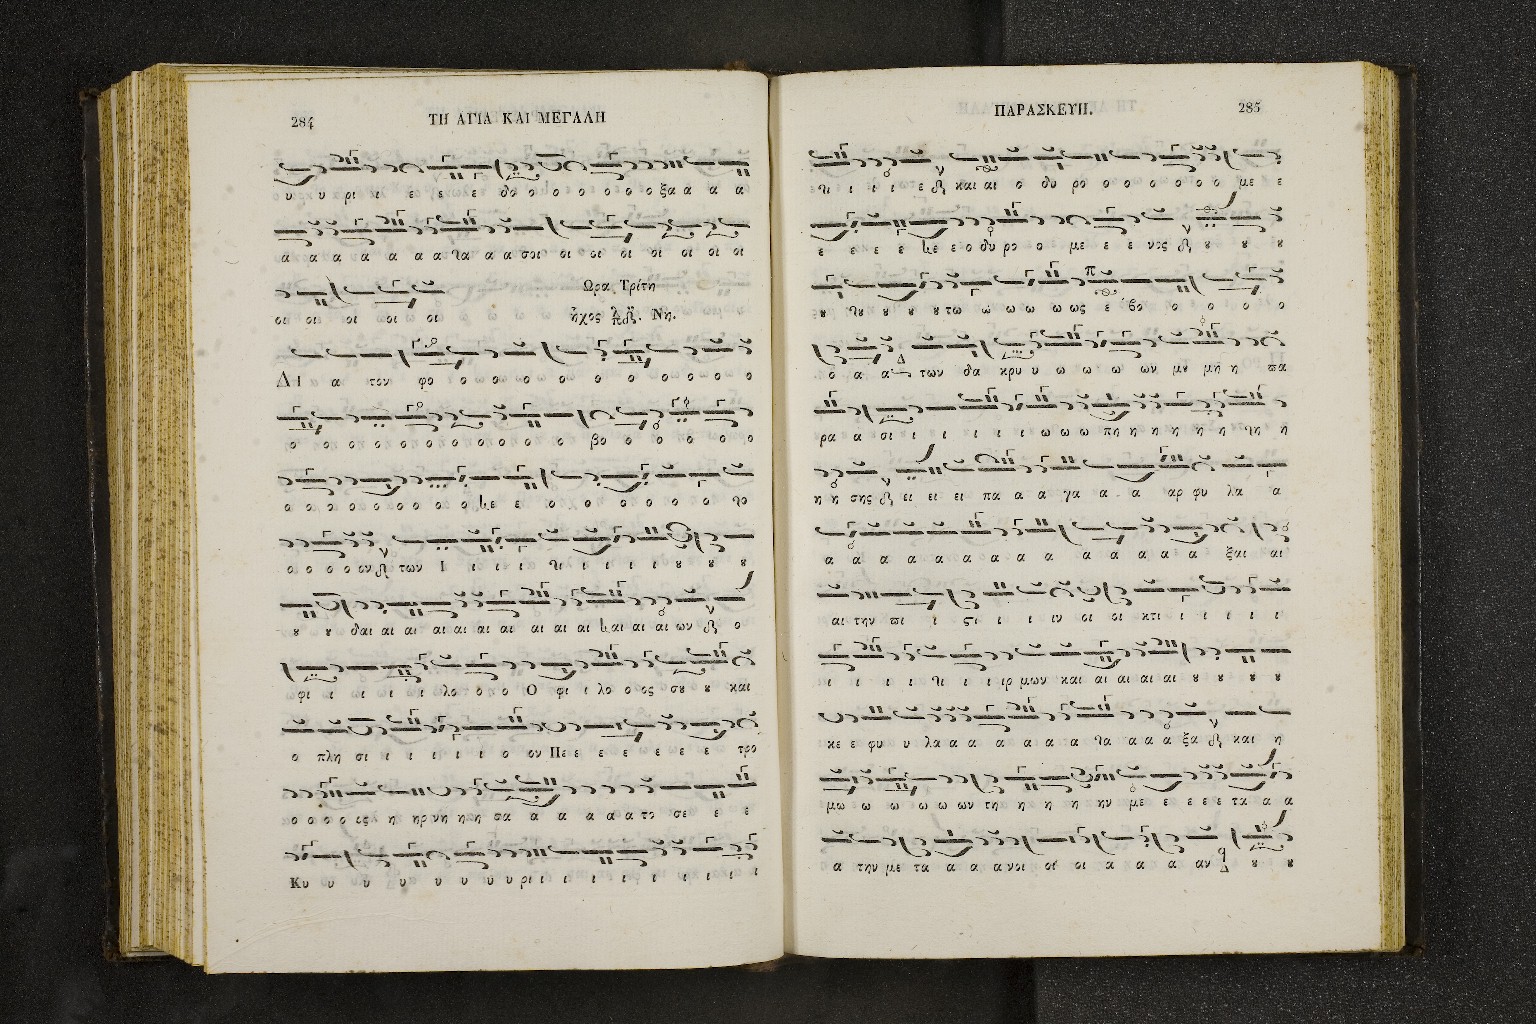 284
ΤΗ ΑΓΙΑ ΚΑΙ ΜΕΓΑΛΗ
υ υ ρι ι ε ε ε ε δο ο ο ο ο ο ο ο ξα α α α
α α α α α α α τα α α σοι οι οι οι οι οι οι οι
οι οι οι οι οι Ωρα Τρίτη
ἦχος Νη.
ΔΙ α α τον φο ο ο ο ο ο ο ο ο ο ο ο ο
ο ο ο ο ο ο ο ο ο ο ο ο βο ο ο ο ο ο
ο ο ο ο ο ο ο ο ο ε ε ο ο ο ο ο ο ο το
ο ο ο ο ον των Ι ι ι ι τι ι ι ι ι ου ου ου
ου ου δαι αι αι αι αι αι αι αι αι αι αι αι αι ων ο
φι ι ι ι ι λο ο ο ο Ο φι ι λο ο ος σου ου και
ο πλη σι ι ι ι ι ι ι ο ον Πε ε ε ε ε ε ε τρο
ο ο ο ο ος η ηρ νη η η σα α α α α α το σε ε ε
Κυ υ υ υ υ υ υ υ ρι ι ι ι ι ι ι ι ι ι
ΠΑΡΑΣΚΕΥΗ.
285
τι ι ι ι ε και αι ο δυ ρο ο ο ο ο ο ο με ε
ε ε ε ε ε ε ο δυ ρο ο με ε ε νος ου ου ου
ου του ου ου ου τω ω ω ω ω ως ε βο ο ο ο ο ο
ο α α των δα κρυ υ ω ω ω ων μου μη η πα
ρα α σι ι ι ι ι ι ι ω ω ω πη η η η η η τη η
η η σης ει ει ει πα α α γα α α αρ φυ λα α
α α α α α α α α α α α α α α ξαι αι
αι την πι ι ςι ι ι ιν οι οι κτι ι ι ι ι ι
ι ι ι ι τι ι ιρ μων και αι αι αι αι ου ου ου ου
κε ε φυ υ λα α α α α α α τα α α α ξα και η
μω ω ω ω ω ων τη η η η η ην με ε ε ε ε τα α α
α την με τα α α α νοι οι οι α α α α αν ου ου